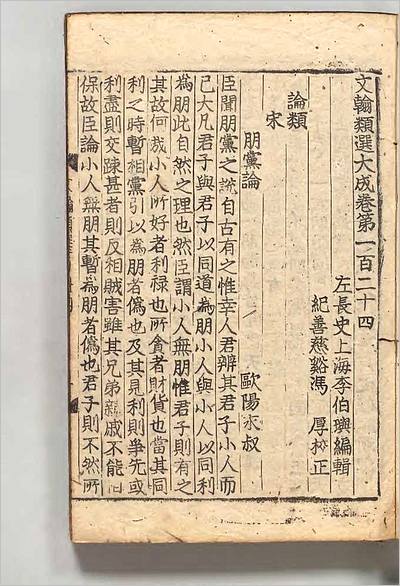 文翰類選大成卷第一百二十四
左長史上海李伯璵編輯
紀善慈谿馮　厚校正
論類
宋
朋黨論　歐陽永叔
臣聞朋黨之說自古有之惟幸人君辨其君子小人而
已大凡君子與君子以同道為朋小人與小人以同利
為朋此自然之理也然臣謂小人無朋惟君子則有之
其故何哉小人所好者利祿也所貪者財貨也當其同
利之時暫相黨引以為朋者偽也及其見利則爭先或
利盡則交疎甚者則反相賊害雖其兄弟親戚不能
保故臣論小人無朋其暫為朋者偽也君子則不然所